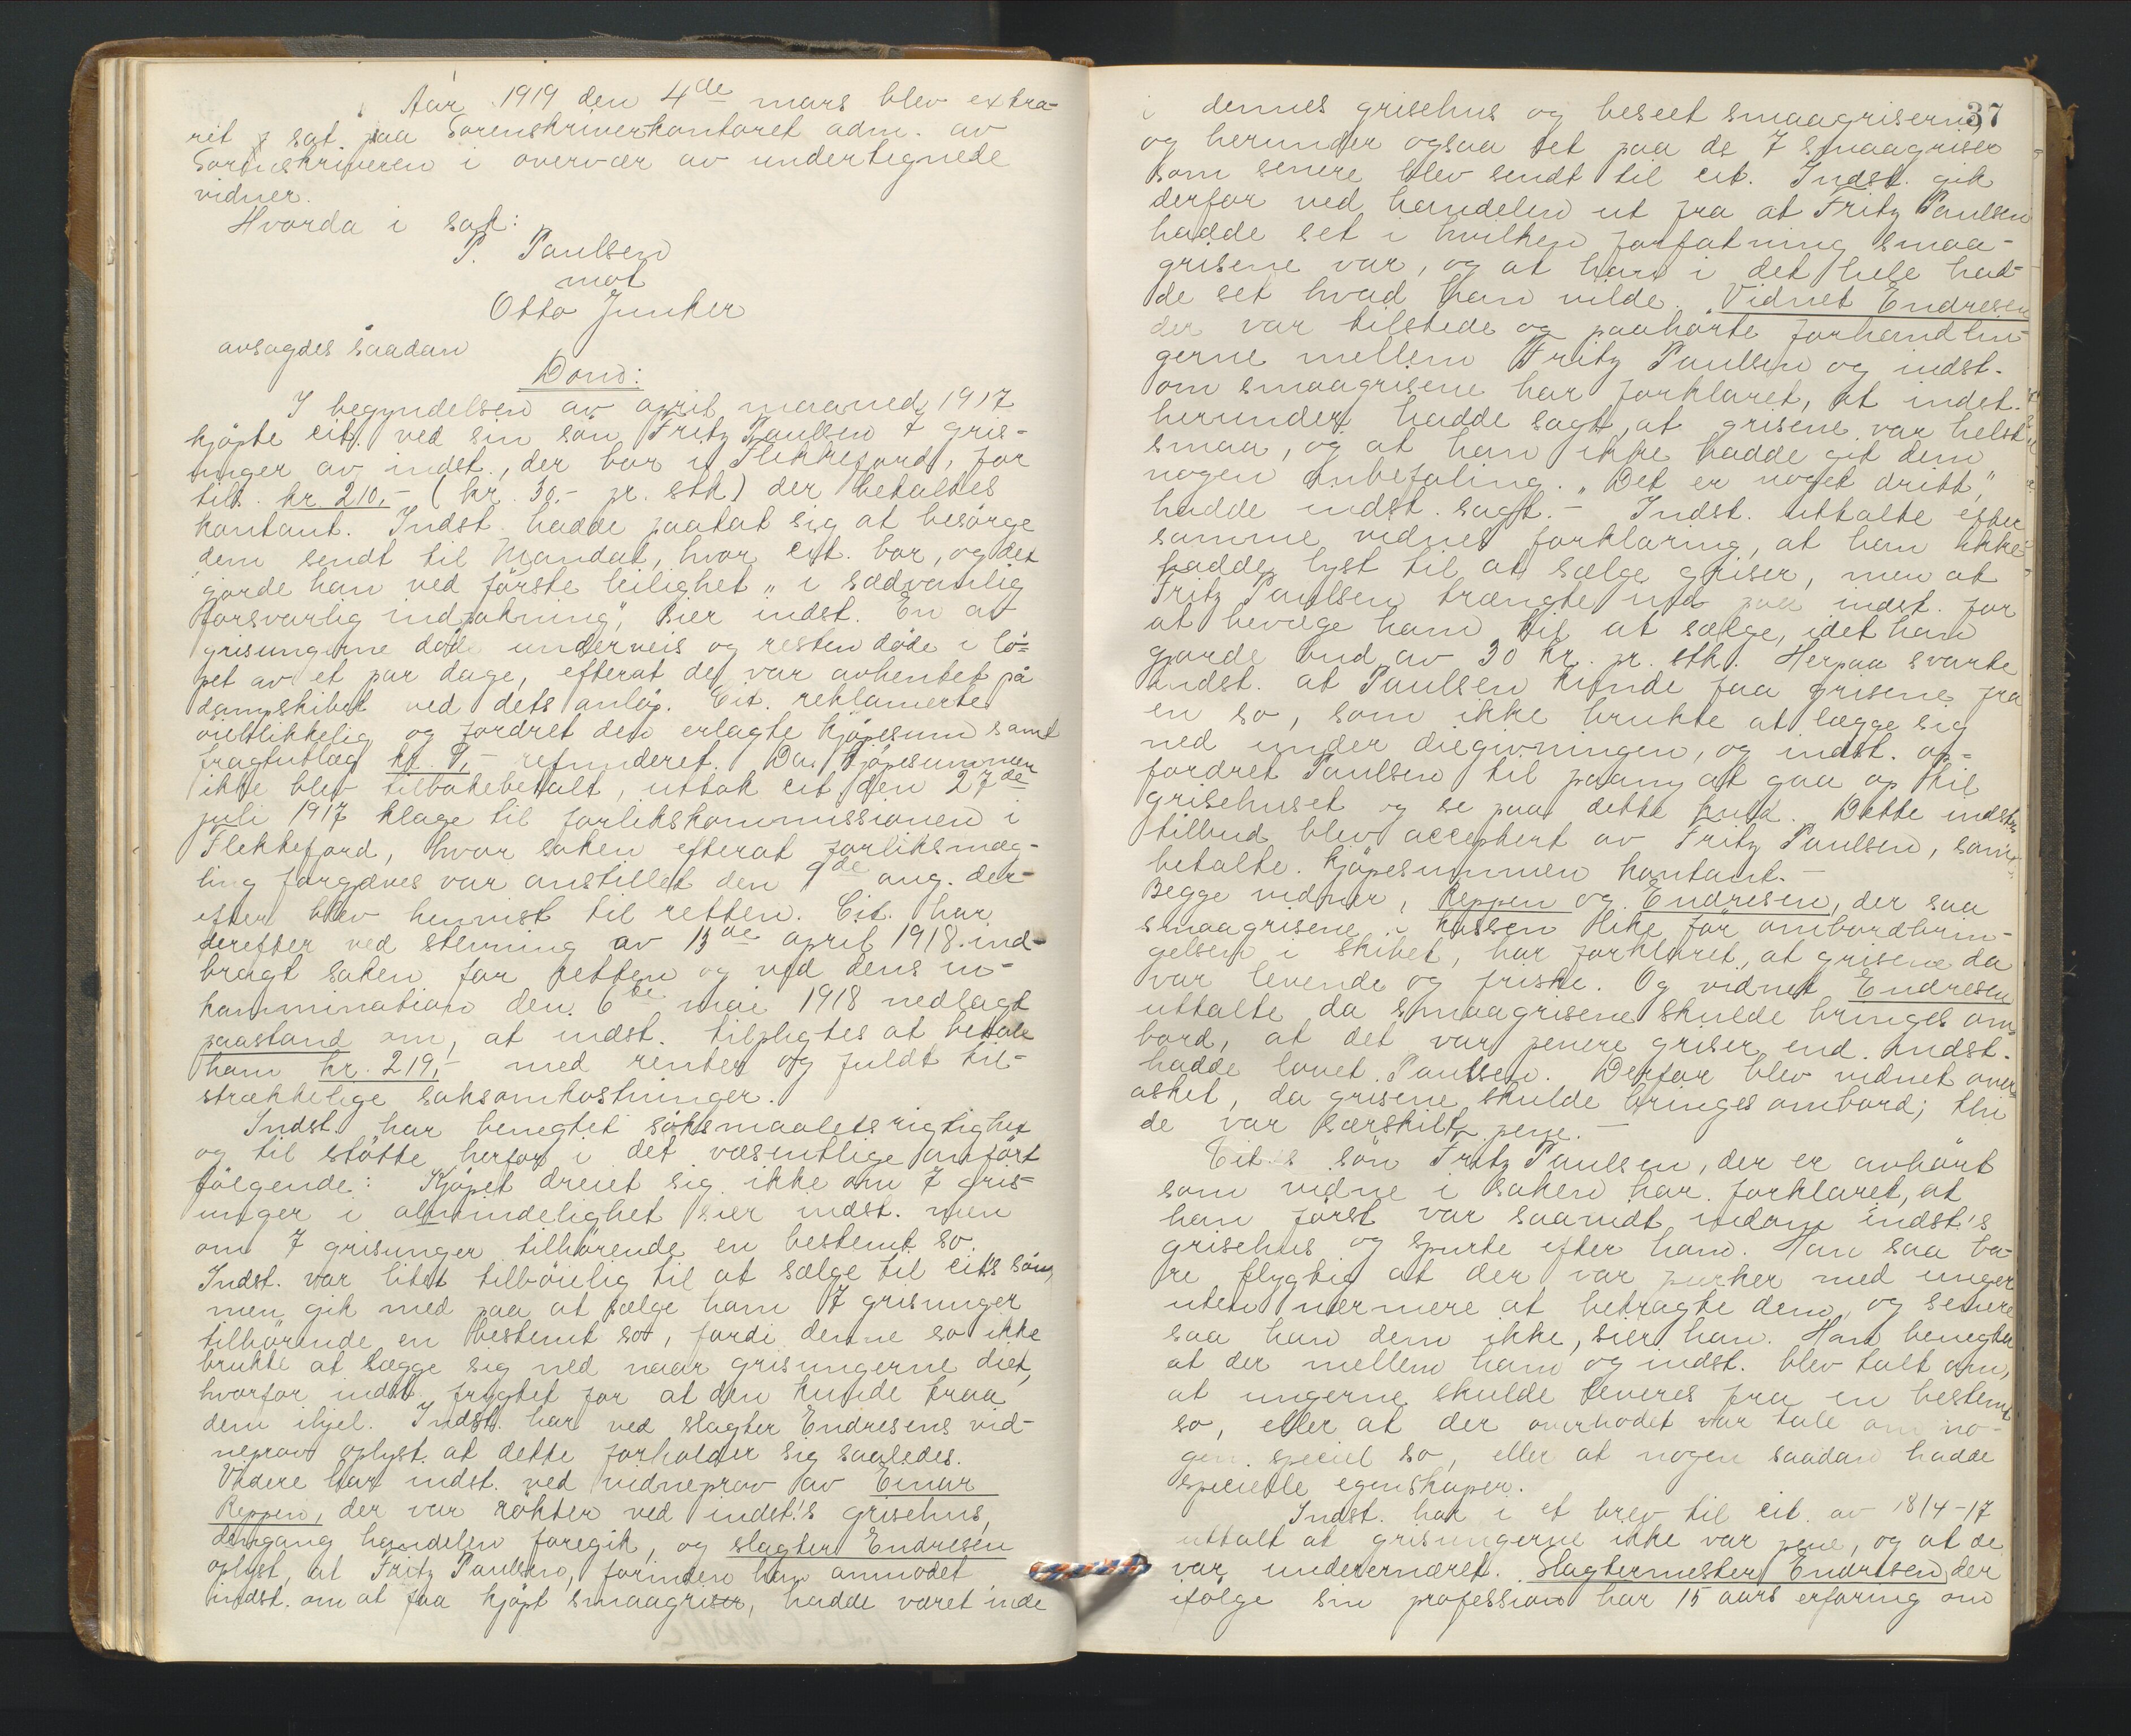 Aar 1919 den 4de mars blev extra-
ret sat paa Sorenskriverkontoret adm. av
Sorenskriveren i overvær av undertegnede
vidner.
Hvorda i sak:
P. Paulsen
mot
Otto Junker
avsagdes saadan
Dom:
I begyndelsen av april maaned 1917
kjöpte cit. ved sin sön Fritz Paulsen 7 gris-
unger av indst., der bor i Flekkefjord, for
tils. kr 210,- (kr. 30.- pr. stk) der betaltes
kontant. Indst. hadde paatat sig at besörge
dem sendt til Mandal, hvor cit. bor, og det
gjorde han ved förste leilighet „i sædvanlig
forsvarlig indpakning", sier indst. En av
grisungerne döde underveis og resten döde i lö-
pet av et par dage, efterat de var avhentet på
dampskibet ved dets anlöp. Cit. reklamerte
öieblikkelig og fordret den erlagte kjöpesum samt
fragtutlæg kr. 9,- refunderet. Da kjöpesummen
ikke blev tilbakebetalt, uttok cit. den 27de
juli 1917 klage til forlikskommissionen i
Flekkefjord, hvor saken efterat forliksmæg-
ling forgjæves var anstillet den 9de aug. der-
efter blev henvist til retten. Cit. har
derefter ved stevning av 13de april 1918 ind-
bragt saken for retten og ved dens in-
kammination den 6te mai 1918 nedlagt
paastand om, at indst. tilpligtes at betale
ham kr. 219,- med renter og fuldt til-
strækkelige saksomkostninger.
Indst. har benegtet söksmaalets rigtighet
og til stötte herfor i det væsentlige anfört
fölgende: Kjöpet dreiet sig ikke om 7 gris-
unger i almindelighet sier indst. men
om 7 grisunger tilhörende en bestemt so.
Indst. var litet tilböielig til at sælge til cits sön,
men gik med paa at sælge ham 7 grisunger
tilhörende en bestemt so, fordi denne so ikke
brukte at lægge sig ned naar grisungerne diet,
hvorfor indst. frygtet for at den kunde traa
dem ihjel. Indst. har ved slagter Endresens vid-
neprov oplyst at dette forholder sig saaledes.
Videre har indst. ved vidneprov av Einar
Reppen, der var rökter ved indst.'s grisehus,
dengang handelen foregik, og slagter Endresen
oplyst, at Fritz Paulsen, forinden han anmodet
indst. om at faa kjöpt smaagriser, hadde været inde
37
i dennes grisehus og beseet smaagriserne,
og herunder ogsaa set paa de 7 smaagriser
som senere blev sendt til cit. Indst. gik
derfor ved handelen ut fra at Fritz Paulsen
hadde set i hvilken forfatning smaa-
grisene var, og at han i det hele had-
de set hvad han vilde. Vidnet Endresen
der var tilstede og paahörte forhandlin-
gerne mellem Fritz Paulsen og indst.
om smaagrisene har forklaret, at indst.
herunder hadde sagt, at grisene var helst
smaa, og at han ikke hadde git dem
nogen anbefaling. „Det er noget dritt,"
hadde indst. sagt. - Indst. uttalte efter
samme vidnes forklaring, at han ikke
hadde lyst til at sælge griser, men at
Fritz Paulsen trængte ind paa indst. for
at bevæge ham til at sælge, idet han
gjorde bud av 30 kr. pr. stk. Herpaa svarte
indst. at Paulsen kunde faa grisene fra
en so, som ikke brukte at lægge sig
ned under diegivningen, og indst. op-
fordret Paulsen til paany at gaa op til
grisehuset og se paa dette kuld. Dette indst's
tilbud blev acceptert av Fritz Paulsen, som
betalte kjöpesummen kontant. -
Begge vidner, Reppen og Endresen, der saa
smaagrisene i kassen like för ombordbrin-
gelsen i skibet, har forklaret, at grisene da
var levende og friske. Og vidnet Endresen
uttalte da smaagrisene skulde bringes om-
bord, at det var penere griser end indst.
hadde lovet Paulsen. Derfor blev vidnet over-
asket, da grisene skulde bringes ombord; thi
de var særskilt pene. -
Cit.'s sön Fritz Paulsen, der er avhört
som vidne i saken har forklaret, at
han först var saavidt indom indst's
grisehus og spurte efter ham. Han saa ba-
re flygtig at der var purker med unger
uten nærmere at betragte dem, og senere
saa han dem ikke, sier han. Han benegter
at der mellem ham og indst. blev talt om,
at ungerne skulde leveres fra en bestemt
so, eller at der overhodet var tale om no-
gen speciel so, eller at nogen saadan hadde
specielle egenskaper.
Indst. har i et brev til cit. av 18/4-17
uttalt at grisungerne ikke var pene, og at de
var underernæret. Slagtermester Endresen, der
ifölge sin profession har 15 aars erfaring om